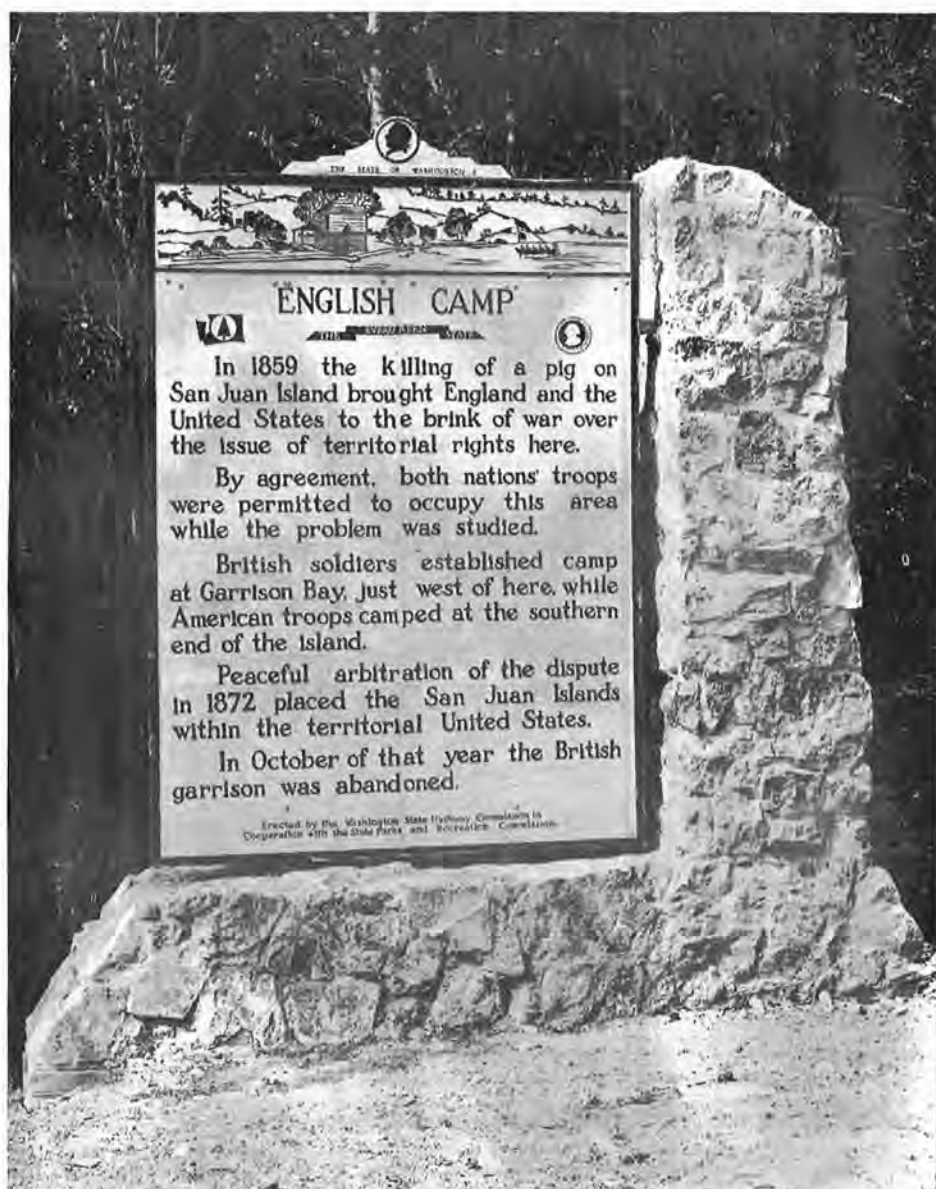 THE STATE OF WASHINGTON
ENGLISH CAMP
THE EVERGREEN STATE
In 1859 the killing of a pig on
San Juan Island brought England and the
United States to the brink of war over
the issue of territorial rights here.
By agreement, both nations' troops
were permitted to occupy this area
while the problem was studied.
British soldiers established camp
at Garrison Bay, just west of here, while
American troops camped at the southern
end of the island.
Peaceful arbitration of the dispute
in 1872 placed the San Juan Islands
within the territorial United States.
In October of that year the British
garrison was abandoned.
Erected by the Washington State Highway Commission in
Cooperation with the State Parks and Recreation Commission.